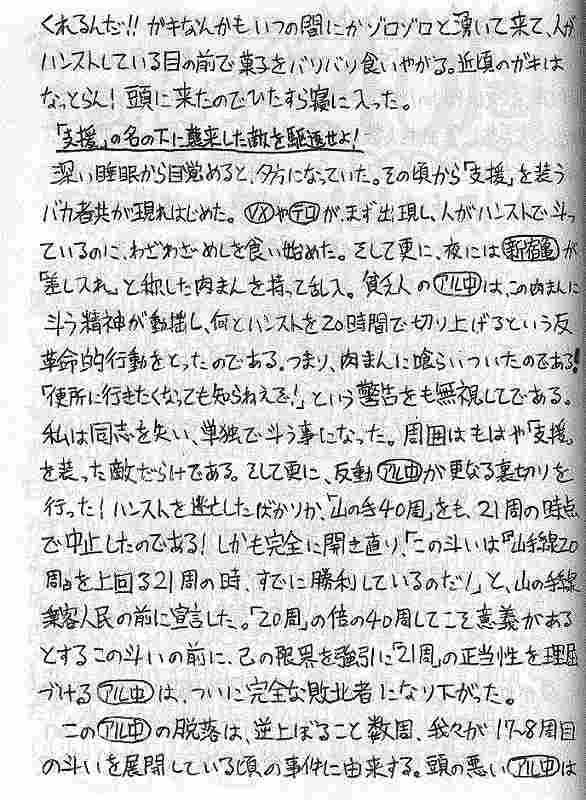 くれるんだ!! ガキなんかもいつの間にかゾロゾロと湧いて来て、人が
ハンストしている目の前で菓子をバリバリ食いやがる。近頃のガキは
なっとらん! 頭に来たのでひたすら寝に入った。
「支援」の名の下に襲来した敵を駆逐せよ!
深い睡眠から目覚めると、夕方になっていた。その頃から「支援」を装う
バカ者共が現れはじめた。VXやテロが、まず出現し、人がハンストで斗っ
ているのに、わざわざめしを食い始めた。そして更に、夜には新宿亀が
「差し入れ」と称した肉まんを持って乱入。貧乏人のアル中は、この肉まんに
斗う精神が動揺し、何とハンストを20時間で切り上げるという反
革命的行動をとったのである。つまり、肉まんに喰らいついたのである!
「便所に行きたくなっても知らねえぞ!」という警告をも無視してである。
私は同志を失い、単独で斗う事になった。周囲はもはや「支援」
を装った敵だらけである。そして更に、反動アル中が更なる裏切りを
行った! ハンストを逃亡したばかりか、「山の手40周」をも、21周の時点
で中止したのである! しかも完全に開き直り、「この斗いは『山手線20
周』を上回る21周の時、すでに勝利しているのだ!」と、山の手線
乗客人民の前に宣言した。「20周」の倍の40周してこそ意義がある
とするこの斗いの前に、己の限界を強引に「21周」の正当性を理屈
づけるアル中は、ついに完全な敗北者になり下がった。
このアル中の脱落は、逆上ぼること数周、我々が17~8周目
の斗いを展開している頃の事件に由来する。頭の悪いアル中は